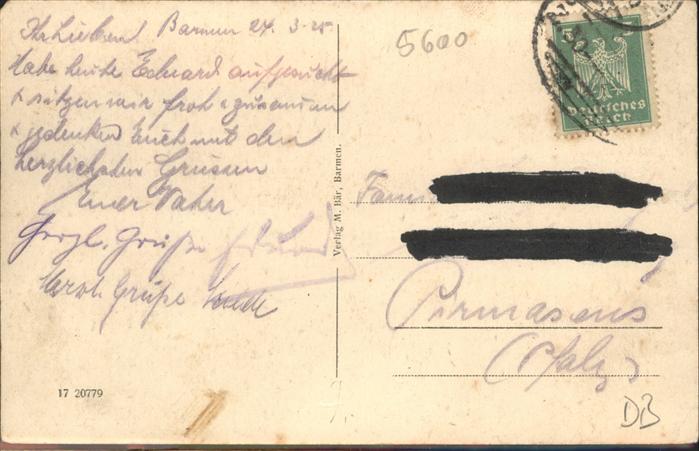 Ihr Lieben! Barmen 24. 3-25
Habe heute Eduard aufgesucht
+ sitzen wir froh zusammen
+ gedenken Euch mit den
herzlichsten Grüssen
Euer Vater
Herzl. Grüße Eduard
Herzl. Grüße
17 20779
Verlag M. Bär, Barmen.
5600
5 5
Deutsches
Reich
Fam
Pirmasens
(Pfalz)
DB